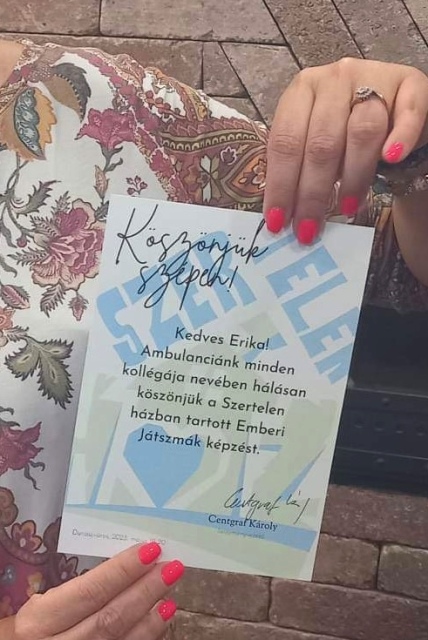 Köszönjük
szépen!
SZER TELEN
Kedves Erika!
Ambulanciánk minden
kollégája nevében hálásan
köszönjük a Szertelen
házban tartott Emberi
Játszmák képzést.
Centgraf Károly